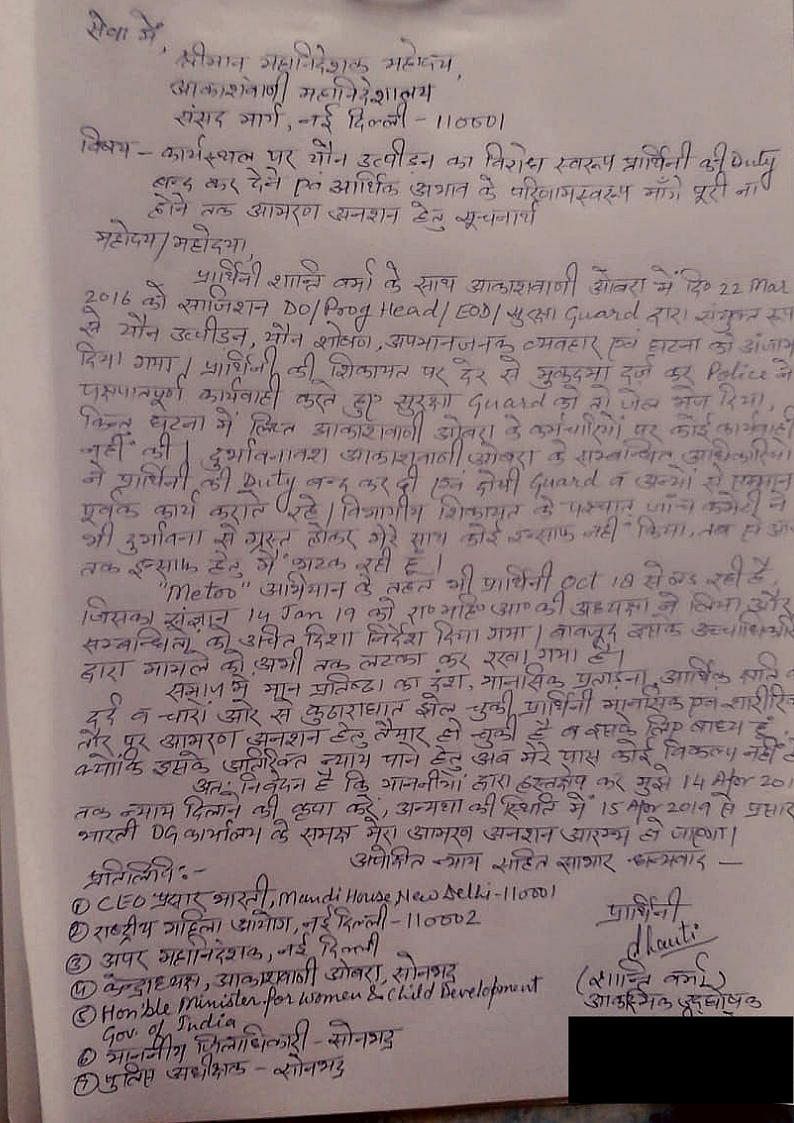 सेवा में,
श्रीमान महानिदेशक महोदय,
आकाशवाणी महानिदेशालय
संसद मार्ग, नई दिल्ली - 110001
विषय - कार्यस्थल पर यौन उत्पीडन का विरोध स्वरूप प्रार्थिनी की Duty
बन्द कर देने एवं आर्थिक अभाव के परिणामस्वरूप माँगे पूरी ना
होने तक आमरण अनशन हेतु सूचनार्थ
महोदय/महोदया,
प्रार्थिनी शान्ति वर्मा के साथ आकाशवाणी ओबरा में दि० 22 Mar
2016 को साजिशन DO/Prog Head/EOD/सुरक्षा Guard द्वारा संयुक्त रूप
से यौन उत्पीडन, यौन शोषण, अपमानजनक व्यवहार एवं घटना को अंजाम
दिया गया। प्रार्थिनी की शिकायत पर देर से मुकदमा दर्ज कर Police ने
पक्षपातपूर्ण कार्यवाही करते हुए सुरक्षा Guard को तो जेल भेज दिया,
किन्तु घटना में लिप्त आकाशवाणी ओबरा के कर्मचारियों पर कोई कार्यवाही
नहीं की। दुर्भावनावश आकाशवाणी ओबरा के सम्बन्धित अधिकारियों
ने प्रार्थिनी की Duty बन्द कर दी एवं दोषी Guard व अन्यों से सम्मान
पूर्वक कार्य कराते रहे। विभागीय शिकायत के पश्चात जाँच कमेटी ने
भी दुर्भावना से ग्रस्त होकर मेरे साथ कोई इन्साफ नहीं किया, तब से आज
तक इन्साफ हेतु मैं भटक रही हूँ।
"Metoo" अभियान के तहत भी प्रार्थिनी Oct 18 से लड रही है,
जिसका संज्ञान 14 Jan 19 को रा० महि० आ० की अध्यक्षा ने लिया और
सम्बन्धितों को उचित दिशा निर्देश दिया गया। बावजूद इसके उच्चाधिकारियों
द्वारा मामले को अभी तक लटका कर रखा गया है।
समाज में मान प्रतिष्ठा का दंश, मानसिक प्रताड़ना, आर्थिक क्षति का
दर्द व चारों ओर से कुठाराघात झेल चुकी प्रार्थिनी मानसिक एवं शारीरिक
तौर पर आमरण अनशन हेतु तैयार हो चुकी है व इसके लिए बाध्य हूं,
क्योंकि इसके अतिरिक्त न्याय पाने हेतु अब मेरे पास कोई विकल्प नहीं है
अतः निवेदन है कि माननीयों द्वारा हस्तक्षेप कर मुझे 14 Apr 201
तक न्याय दिलाने की कृपा करें, अन्यथा की स्थिति में 15 Apr 2019 से प्रसार
भारती DG कार्यालय के समक्ष मेरा आमरण अनशन आरम्भ हो जाएगा।
अपेक्षित न्याय सहित साभार धन्यवाद —
प्रतिलिपि:-
① CEO प्रसार भारती, Mandi House, New Delhi-110001
② राष्ट्रीय महिला आयोग, नई दिल्ली-110002
③ अपर महानिदेशक, नई दिल्ली
④ केन्द्राध्यक्ष, आकाशवाणी ओबरा, सोनभद्र
⑤ Hon'ble Minister for Women & Child Development
Gov. of India
⑥ माननीय जिलाधिकारी - सोनभद्र
⑦ पुलिस अधीक्षक - सोनभद्र
प्रार्थिनी
Shanti
(शान्ति वर्मा)
आकस्मिक उद्घोषक